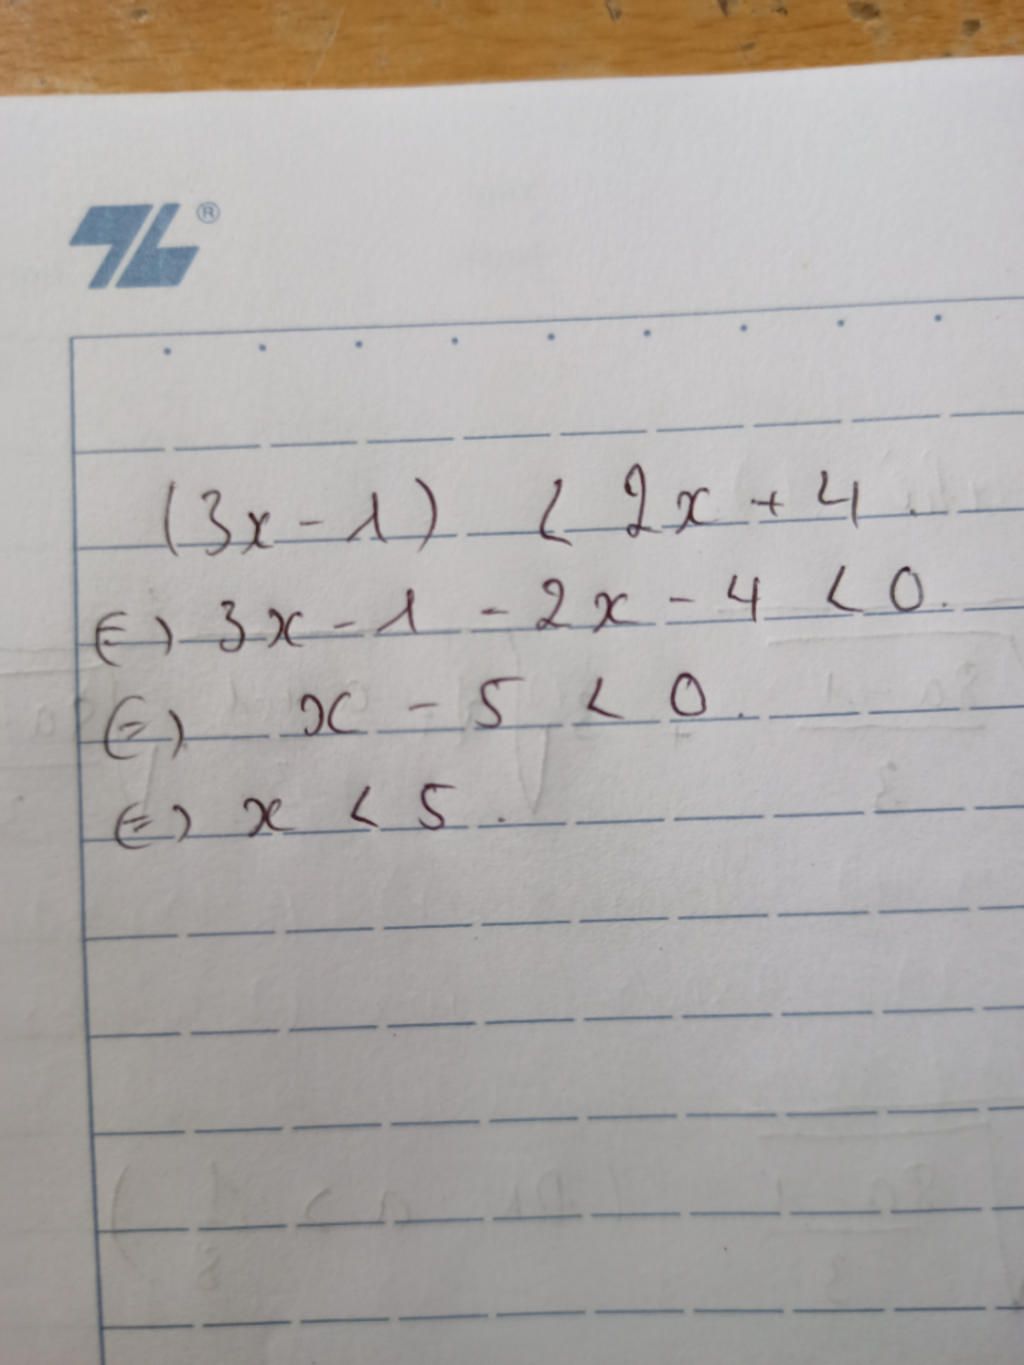 (3x - 1) < 2x + 4.
⇔ 3x - 1 - 2x - 4 < 0.
⇔ x - 5 < 0.
⇔ x < 5.